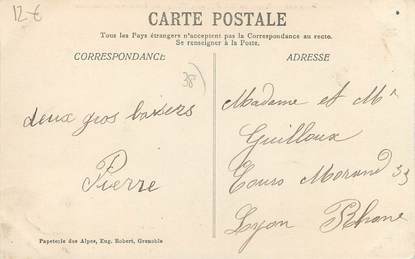 12 €
CARTE POSTALE
Tous les Pays étrangers n'acceptent pas la Correspondance au recto.
Se renseigner à la Poste.
CORRESPONDANCE
ADRESSE
38
deux gros baisers
Pierre
Madame et Mr
Guilloux
Cours Morand 33
Lyon Rhone
Papeterie des Alpes, Eug. Robert, Grenoble